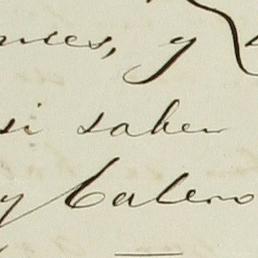 y
si saber
y Calero